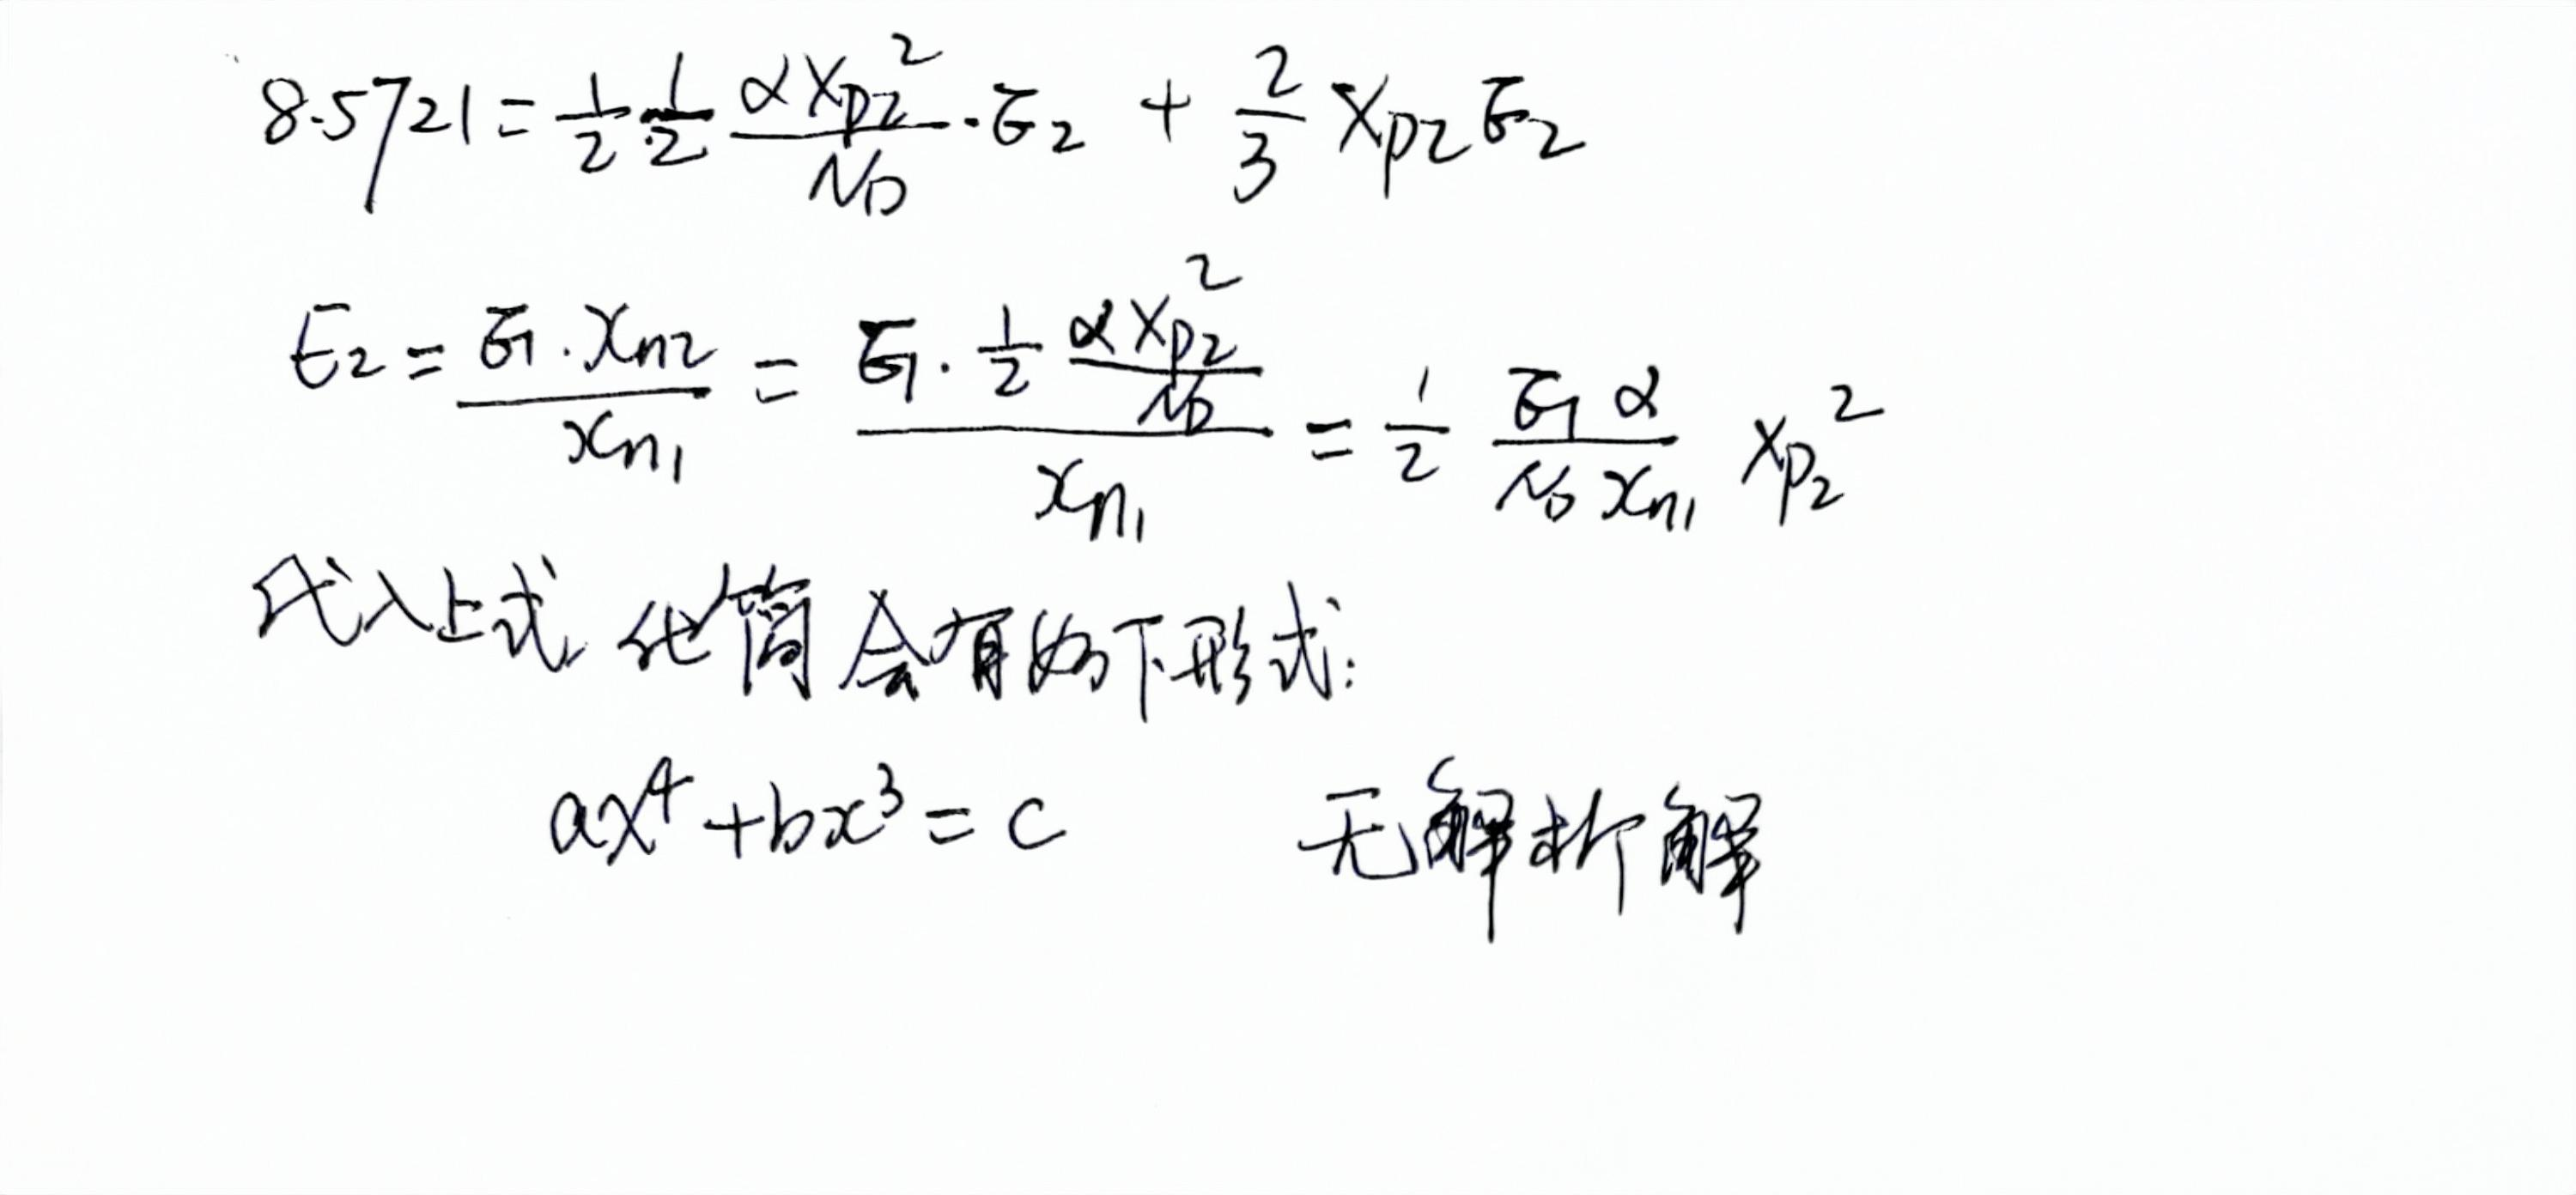 8.5721 = 1/2 · 1/2 αX_{P2}²/N_D · E_2 + 2/3 X_{P2} E_2
E_2 = E_1 · x_{n2} / x_{n1} = (E_1 · 1/2 αX_{P2}²/N_D) / x_{n1} = 1/2 E_1 α / (N_D x_{n1}) X_{P2}²
代入上式, 化简会有如下形式:
ax⁴ + bx³ = c 无解析解